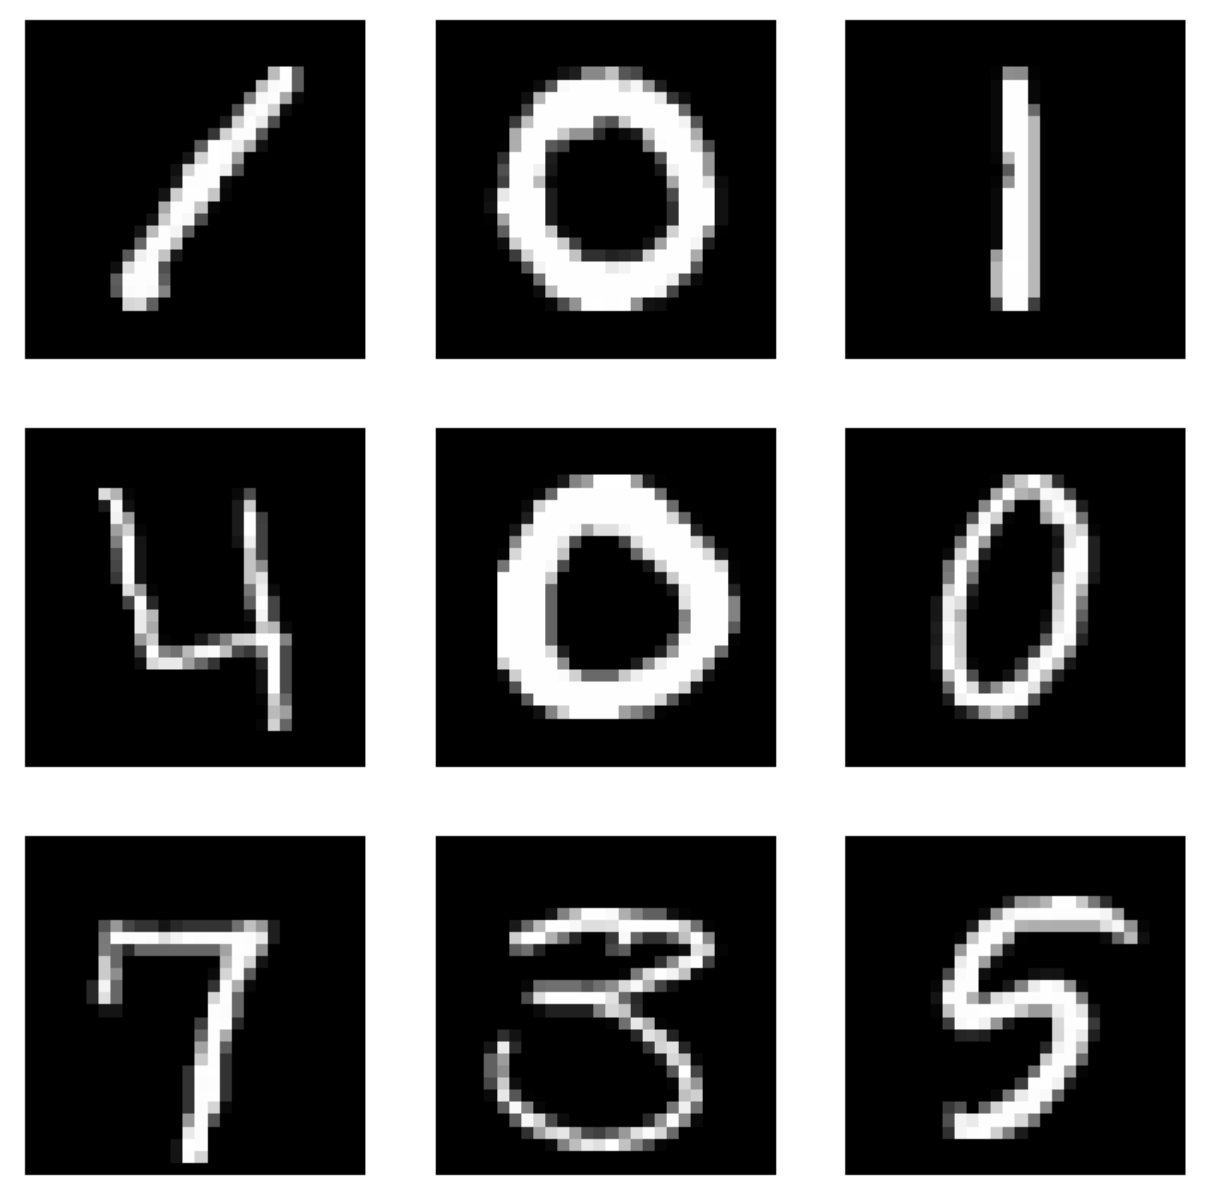 1 0 1
4 0 0
7 3 5